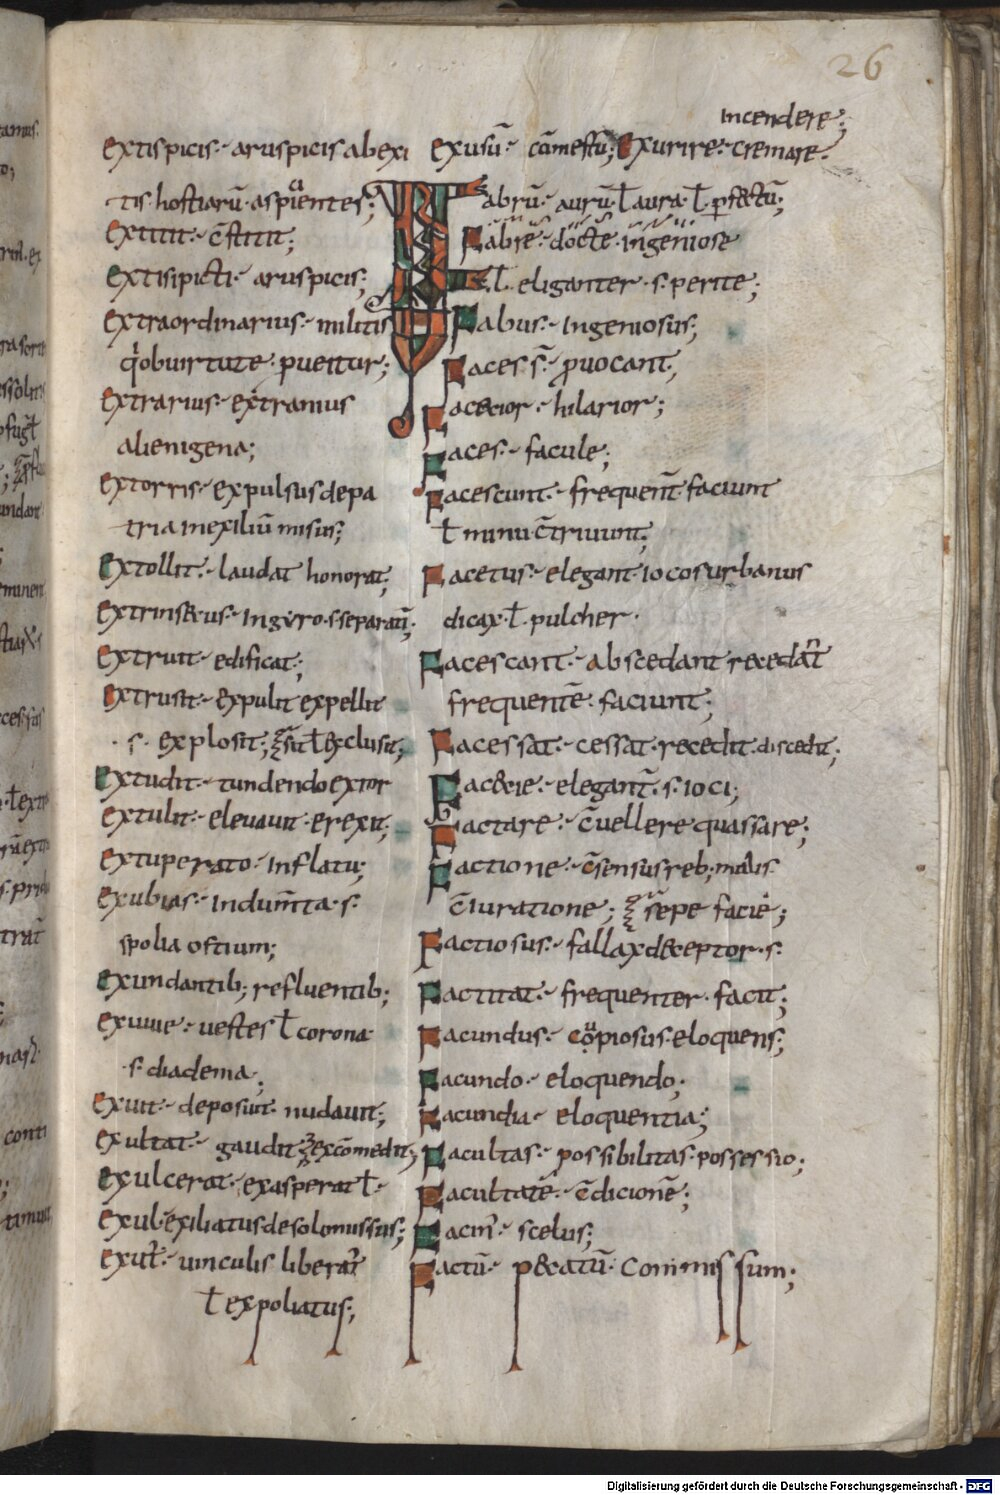 26
Extispicis · aruspicis ab exi
tis hostiarū · aspicientes;
Extitit · c̄stitit;
Extisipicti · aruspicis;
Extraordinarius · militis
q̇ ob uirtute · puehitur;
Extrarius · extraneus
alienigena;
Extorris · expulsus de pa
tria in exiliū misus;
Extollit · laudat honorat;
Extrinsecus · In gyro · s · separatī;
Extruit · edificat;
Extrusit · expulit expellit
· s · explosit; sit ł exclusit;
Extudit · tundendo extor
Extulit · eleuauit · erexit;
Extuperato · Inflatu;
Exubias · Indum̄ta · s ·
spolia ostium;
Exundantib; refluentib;
Exuuie · uestes ł corona
· s · diadema;
Exuit · deposuit · nudauit;
Exultat · gaudit excōmedit;
Exulcerat · exasperat ł ·
Exul · exiliatus de solo missus;
Exut̄ · uinculis liberat̄
ł expoliatus;
Incendere;
Exusū · cōmestū; Exurire · cremare ·
Fabrū · aurū ł aura · ł · pfectū;
Fabre · docte · ingeniose
ł · eliganter · s · perite;
Fabus · Ingeniosus;
Faces s̄ · puocant;
Facecior · hilarior;
Faces · facule;
Facescunt · frequent̄ · faciunt
ł minu c̄triuunt;
Facetus · elegant · iocos urbanus
dicax · ł · pulcher ·
Facescant · abscedant recedāt
frequentē · faciunt;
Facessat · cessat · recedit · discedit;
Facecie · elegant̄ · s · ioci;
Factare · c̄uellere quassare;
Factione · c̄sensus reb; malis
c̄iuratione; sepe facie;
Factiosus · fallax deceptor · s ·
Factitat · frequenter · facit;
Facundus · copiosus · eloquens;
Facundo · eloquendo;
Facundia · eloquentia;
Facultas · possibilitas · possessio;
Facultatē · c̄dicionē;
Facin̄ · scelus;
Factū · peccatū · commissum;
Digitalisierung gefördert durch die Deutsche Forschungsgemeinschaft - DFG